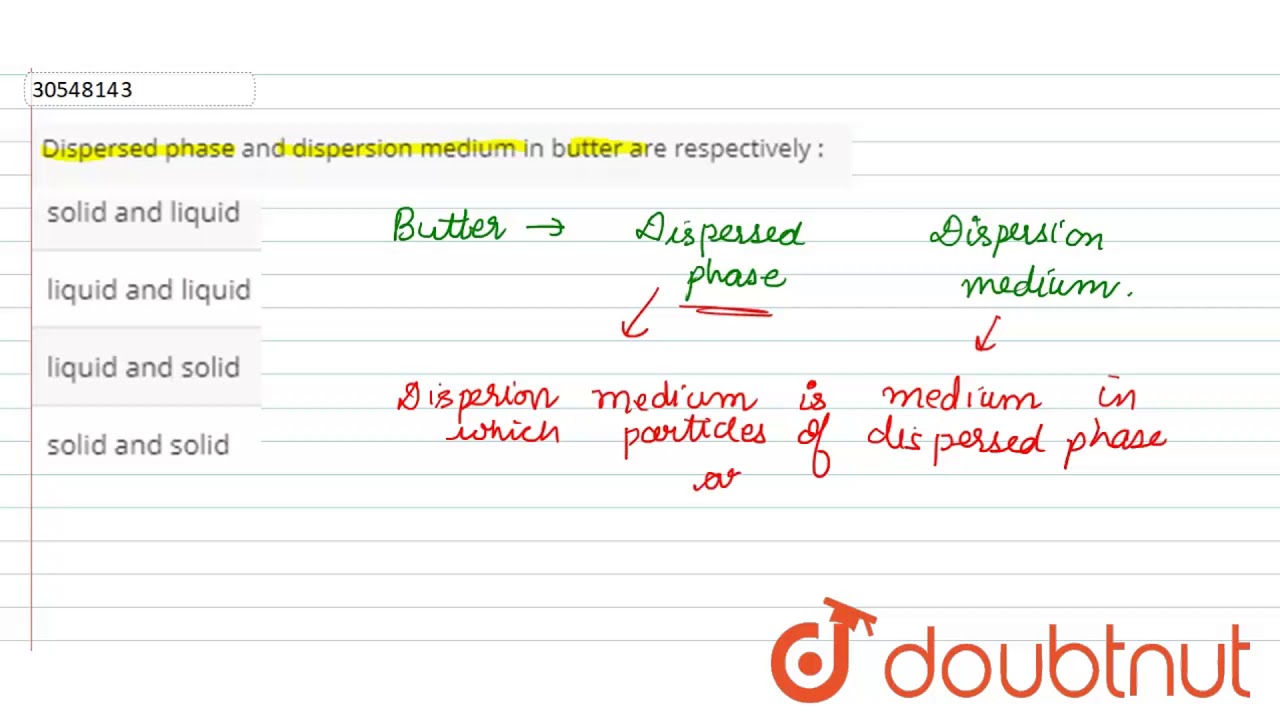 30548143
Dispersed phase and dispersion medium in butter are respectively :
solid and liquid
liquid and liquid
liquid and solid
solid and solid
Butter → Dispersed Dispersion
phase medium.
Disperion medium is medium in
which particles of dispersed phase
ar
doubtnut